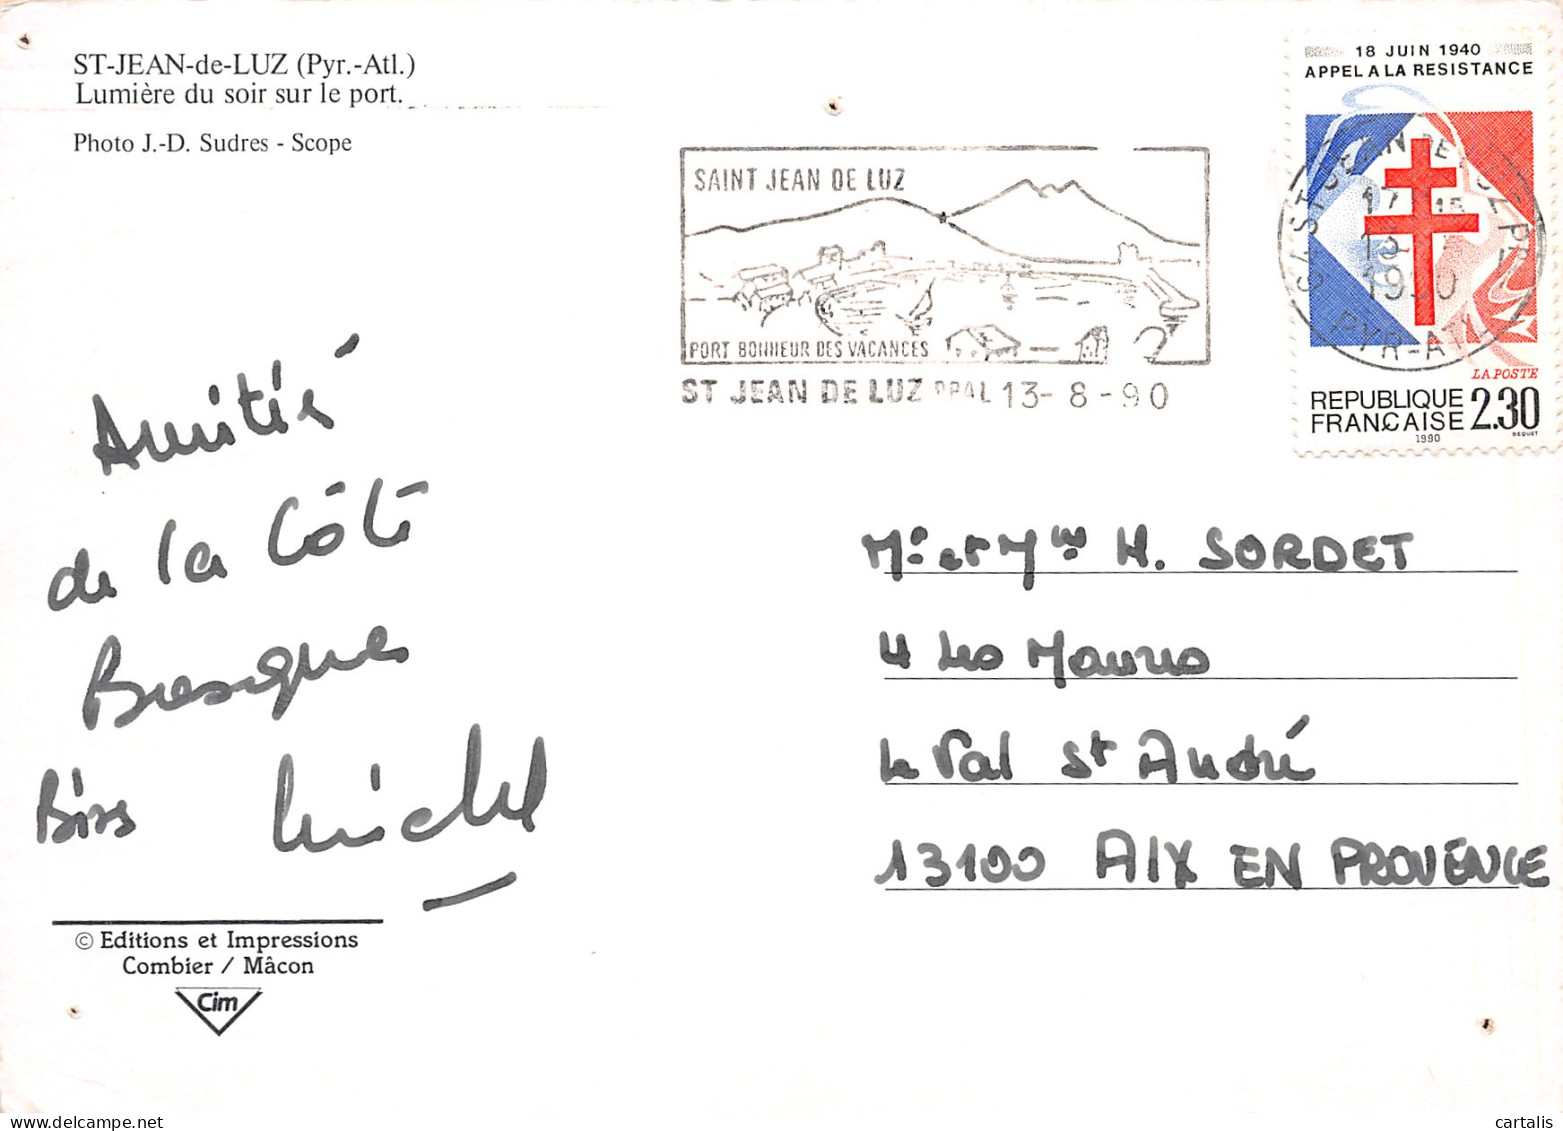 ST-JEAN-de-LUZ (Pyr.-Atl.)
Lumière du soir sur le port.
Photo J.-D. Sudres - Scope
SAINT JEAN DE LUZ
PORT BONHEUR DES VACANCES
ST JEAN DE LUZ PPAL 13-8-90
18 JUIN 1940
APPEL A LA RESISTANCE
ST JEAN DE LUZ PPAL
1990
PYR-ATL
LA POSTE
REPUBLIQUE
FRANÇAISE 2.30
1990
Amitiés
de la Côte
Basque
Bises Michel
Mr et Mme H. SORDET
4 Les Maures
Le Val St André
13100 AIX EN PROVENCE
© Editions et Impressions
Combier / Mâcon
Cim
cartalis